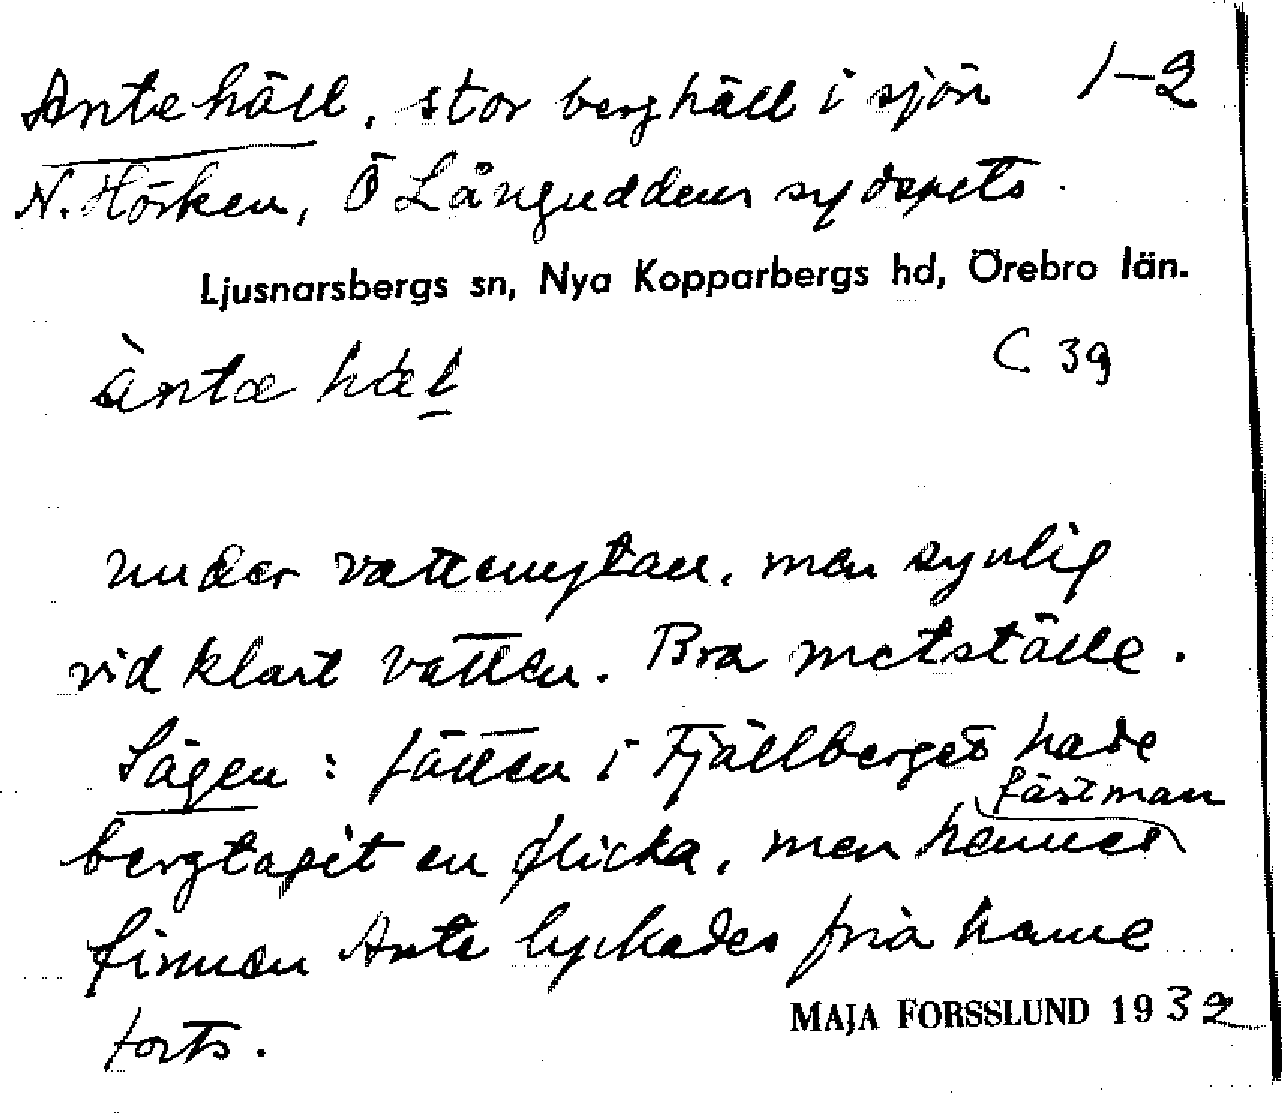 Antehäll, stor berghäll i sjön 1-2
N. Hörken, Ö Långuddens sydspets.
Ljusnarsbergs sn, Nya Kopparbergs hd, Örebro län.
àntæ hæl C 39
under vattenytan, men synlig
vid klart vatten. Bra metställe.
Sägen: Jätten i Fjällberget hade
fästman
bergtagit en flicka, men hennes
finnen Ante lyckades fria henne
forts.
MAJA FORSSLUND 1932